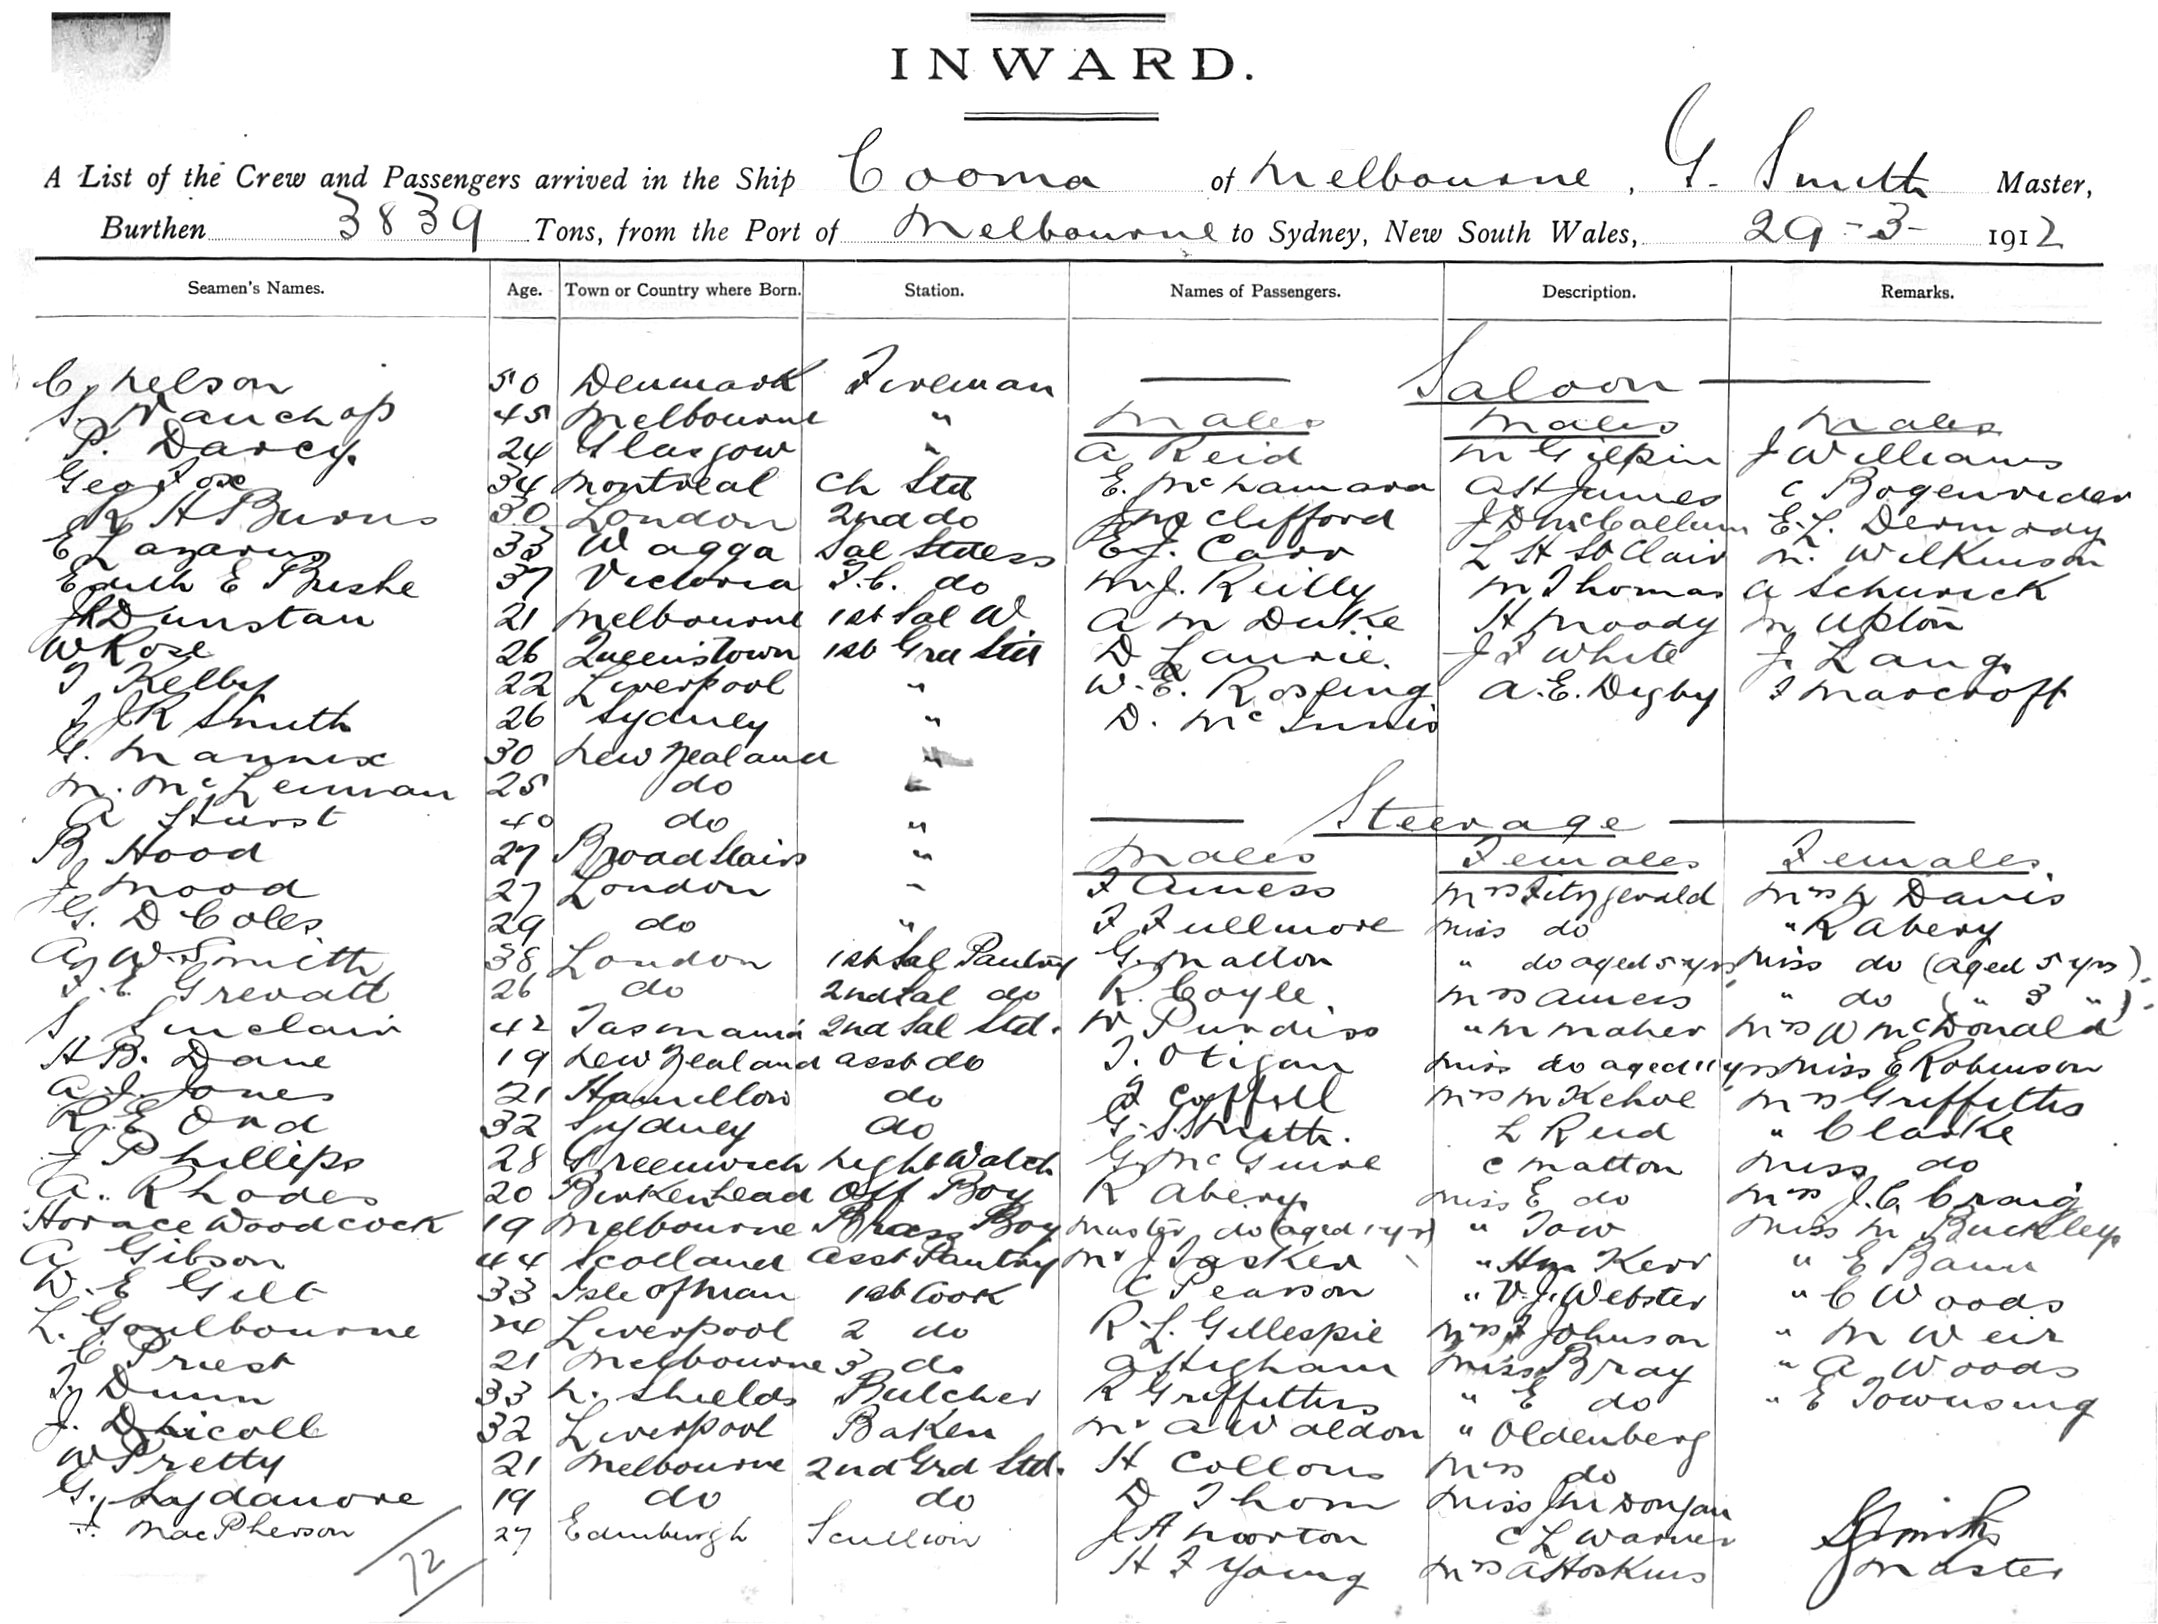 INWARD.
A List of the Crew and Passengers arrived in the Ship Cooma of Melbourne, G. Smith Master,
Burthen 3839 Tons, from the Port of Melbourne to Sydney, New South Wales, 29-3-1912
Seamen's Names. Age. Town or Country where Born. Station. Names of Passengers. Description. Remarks.
Saloon
C Nelson 50 Denmark Fireman
S. Wauchop 45 Melbourne " Males Males Males
P. Darcy 24 Glasgow " A Reid M Gilpin J Williams
Geo Fox 34 Montreal Ch Std E. McNamara A H James C Bogenrieder
R H Burns 30 London 2nd do Clifford J D McCallum E. L. Dermody
E Lazarus 33 Wagga Sal Stdess E J. Carr L H St Clair M. Wilkinson
Edith E 37 Victoria F.C. do M. J. Reilly M Thomas A Schurick
Dunstan 21 Melbourne 1st Sal W A M Duke H Moody M Upton
W Rose 26 Queenstown 1st Grd Std D Laurie. J F White J. Lang
T Kelby 22 Liverpool " W. E. Rosling A. E. Digby F Marcroft
F J R Smith 26 Sydney " D. McInnis
G. Mannix 30 New Zealand "
M. McLennan 25 do "
A Hurst 40 do " Steerage
B Hood 27 Broadstairs " Males Females Females
J Mood 27 London " F Amess Mrs Fitzgerald Mrs Davis
G. D Coles 29 do " F Fullmore Miss do " R Abery
A W. Smith 38 London 1st Sal Pantry G. Matton " do aged 5 yrs Miss do (aged 5 yrs)
F. E Grevatt 26 do 2nd Sal do R. Coyle. Mrs Amess " do ( " 3 " )
S Sinclair 42 Tasmania 2nd Sal Std. W Purdiss " M Maher Mrs W McDonald
H B. Dane 19 New Zealand asst do T. Otigan Miss do aged 11 yrs Miss E Robinson
A. J. Jones 21 Hamilton do F Coffill Mrs M Kehoe Mrs Griffiths
R. E Ord 32 Sydney do G. S. Smith. L Reid " Clarke
J Phillips 28 Greenwich Night Watch G McGuire C Matton Miss do
A. Rhodes 20 Birkenhead Off Boy R Abery Miss E do Mrs J. C. Craig
Horace Woodcock 19 Melbourne Brass Boy Master do (aged 1 yr) " Tow Miss M Buckley
A Gibson 44 Scotland Asst Pantry Mr J Tasker " Kerr " E
W. E Gilt 33 Isle of Man 1st Cook C Pearson " V. J. Webster " C Woods
L. Goulbourne 24 Liverpool 2 do R. L. Gillespie Mrs F Johnson " M Weir
C Priest 21 Melbourne 3 do A Higham Miss Bray " A Woods
T Dunn 33 N. Shields Butcher R Griffiths " E do " E Townsing
J. Driscoll 32 Liverpool Baker Mr A Waldon " Oldenberg
W Pretty 21 Melbourne 2nd Grd Std. H Collons Mrs do
G. 19 do do D Thom Miss Dongan
MacPherson 27 Edinburgh Scullion J A Morton C L Warner G Smith
72 H F Young Mrs A Hoskins Master